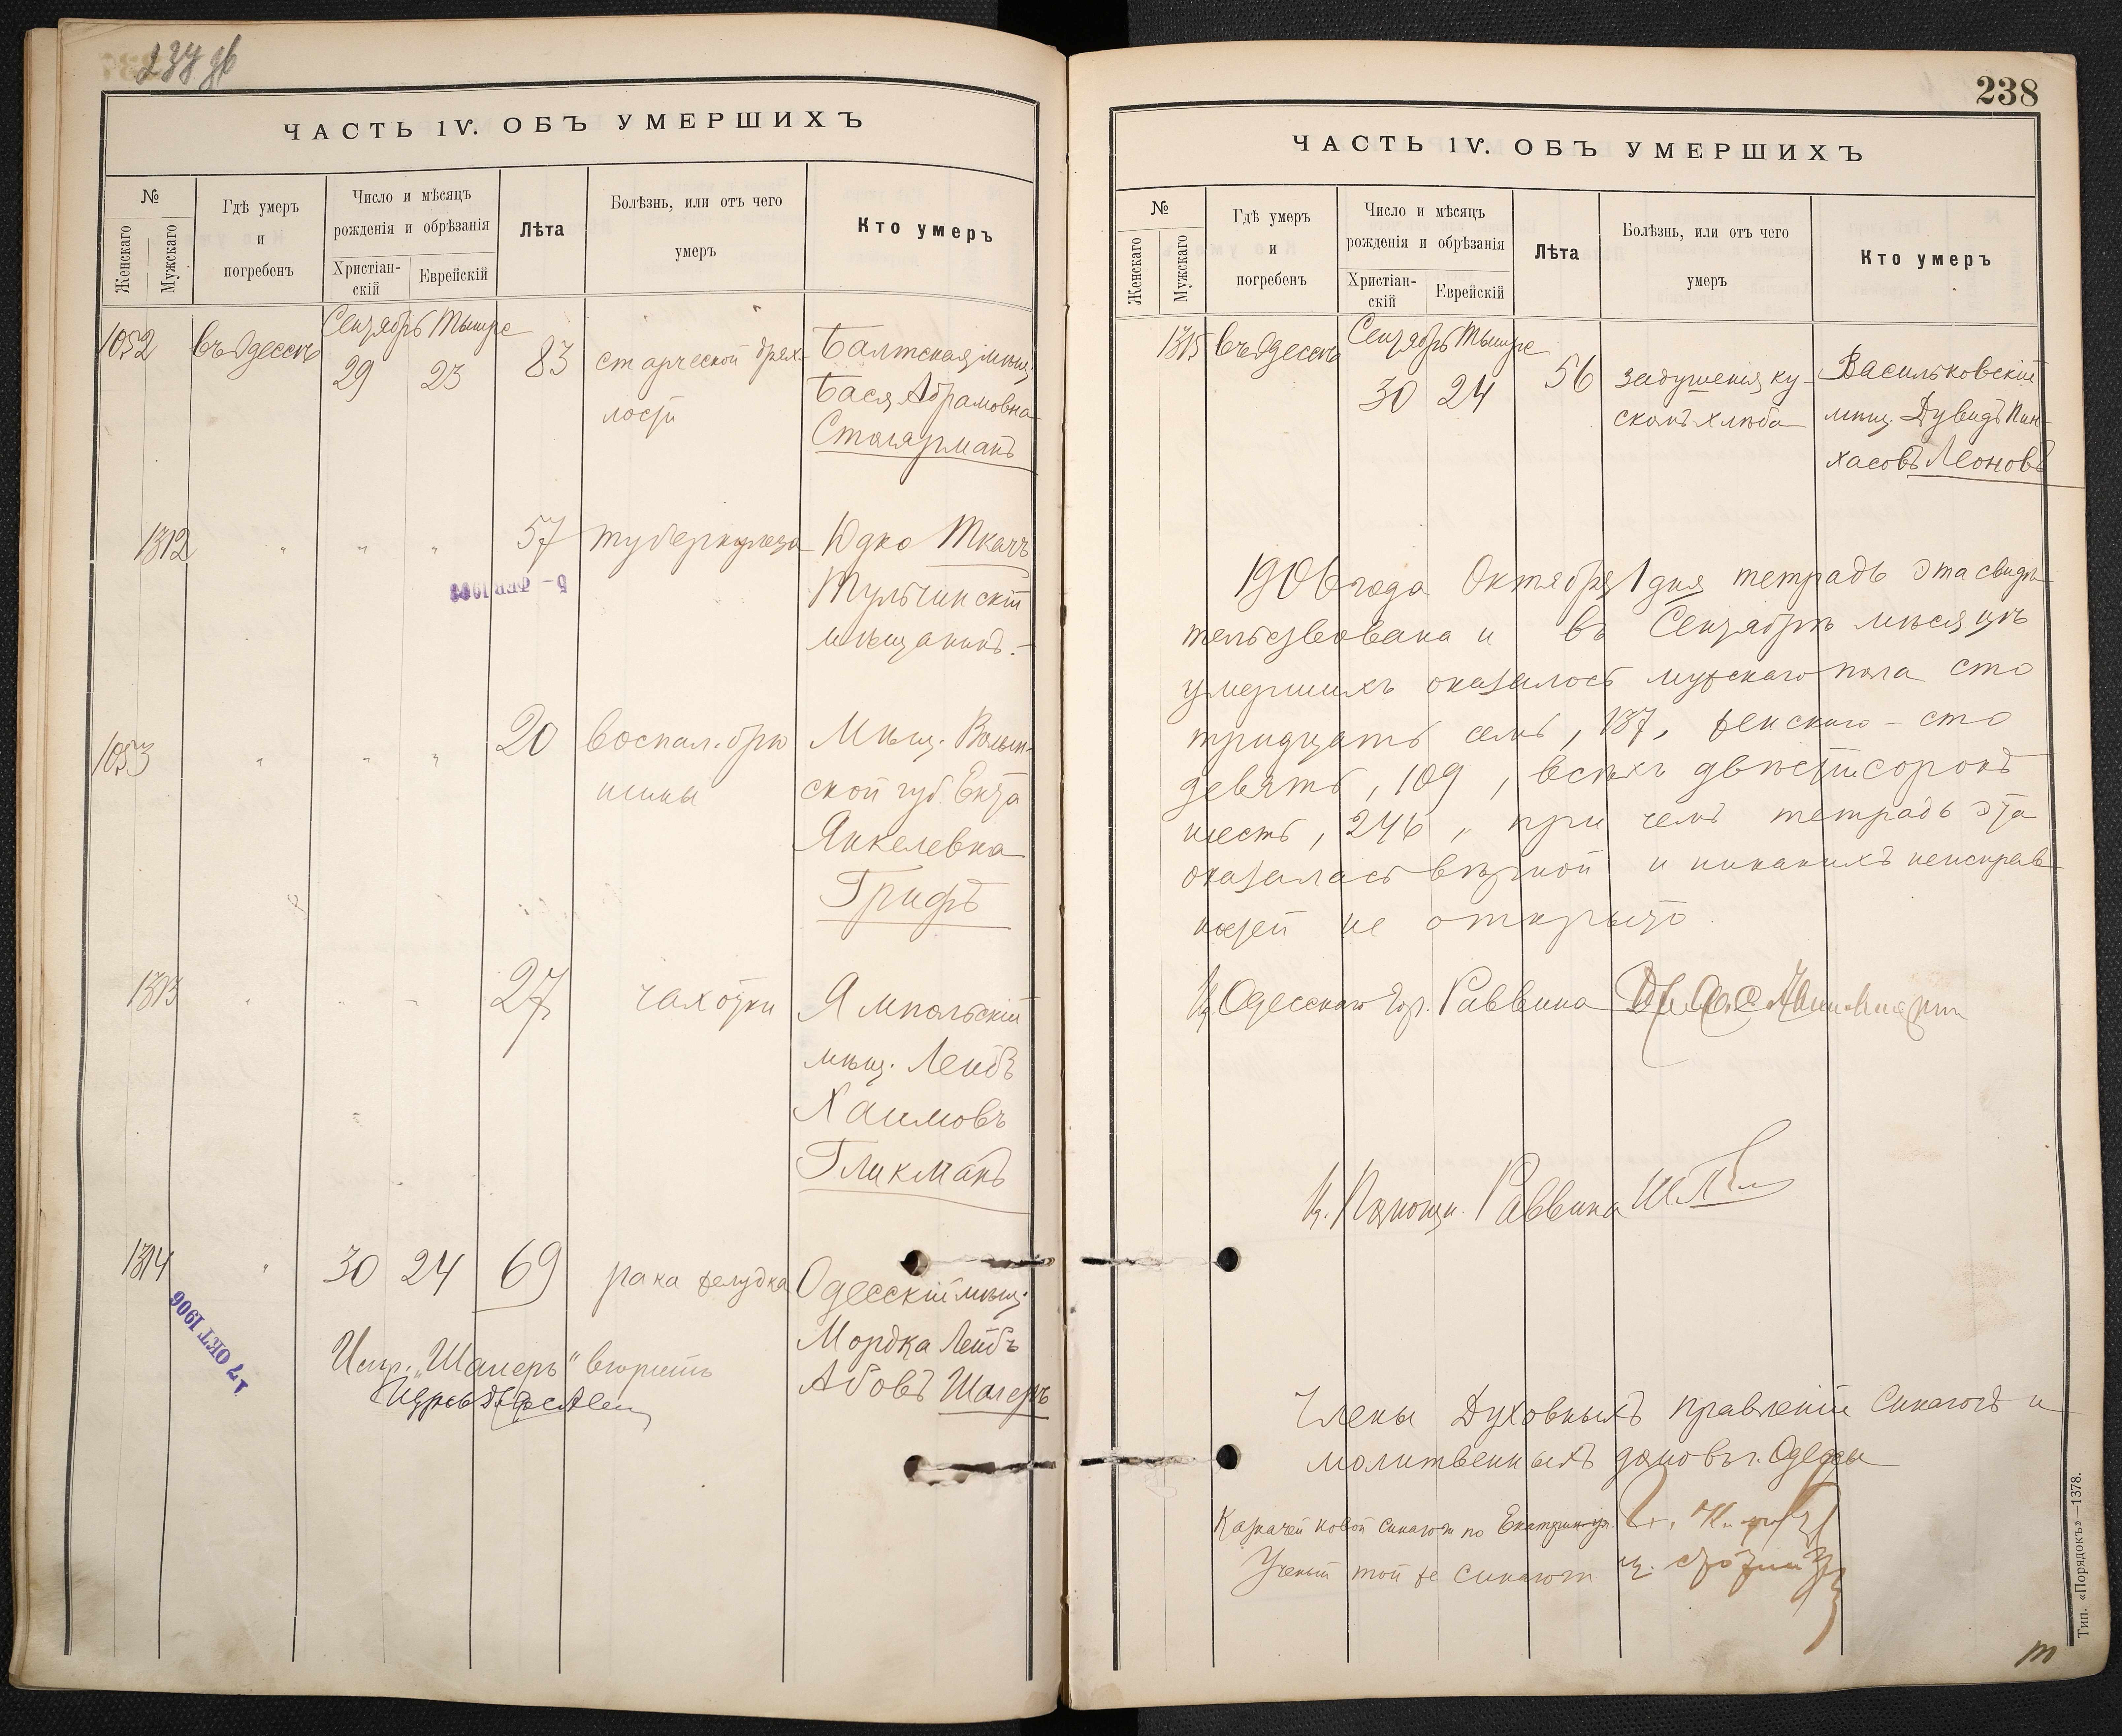 237 об
ЧАСТЬ IV. ОБЪ УМЕРШИХЪ
№
Женскаго
Мужскаго
Гдѣ умеръ
и
погребенъ
Число и мѣсяцъ
рожденія и обрѣзанія
Христіан-
скій
Еврейскій
Лѣта
Болѣзнь, или отъ чего
умеръ
Кто умеръ
1052 въ Одессѣ Сентябрь Тышре 29 23 83 старческой дрях- Балтская мѣщ.
лости Бася Абрамовна
Столярманъ
1312 " " " 57 туберкулеза Юдко Ткачъ
5 - ФЕВ 1908
Тульчинскій
мѣщанинъ.-
1053 " " " 20 воспал. брю Мѣщ. Волын-
шины ской губ. Ента
Янкелевна
Грифъ
1313 " " " 27 чахотки Ямпольскій
мѣщ. Лейбъ
Хаимовъ
Гликманъ
1314 " 30 24 69 рака желудка Одесскій мѣщ.
Мордка Лейбъ
Абовъ Шагеръ
17 ОКТ 1906
Испр. „Шагеръ" вѣрить
238
ЧАСТЬ IV. ОБЪ УМЕРШИХЪ
№
Женскаго
Мужскаго
Гдѣ умеръ
и
погребенъ
Число и мѣсяцъ
рожденія и обрѣзанія
Христіан-
скій
Еврейскій
Лѣта
Болѣзнь, или отъ чего
умеръ
Кто умеръ
1315 въ Одессѣ Сентябрь Тышре 30 24 56 задушенія ку- Васильковскій
скомъ хлѣба мѣщ. Дувидъ Пин-
хасовъ Леоновъ
1906 года Октября 1 дня тетрадь эта свидѣ
тельствована и въ Сентябрѣ мѣсяцѣ
умершихъ оказалось мужскаго пола сто
тридцать семь, 137, женскаго - сто
девять, 109, всѣхъ двѣсти сорокъ
шесть, 246, при чемъ тетрадь эта
оказалась вѣрной и никакихъ неисправ
ностей не открыто.
И. Одесскаго Гор. Раввина
И. Помощн. Раввина
Члены Духовныхъ правленій синагогъ и
молитвенныхъ домовъ г. Одессы
Казначей новой синагоги по Екатерин. ул.
Ученый той же синагоги
Тип. «Порядокъ»—1378.